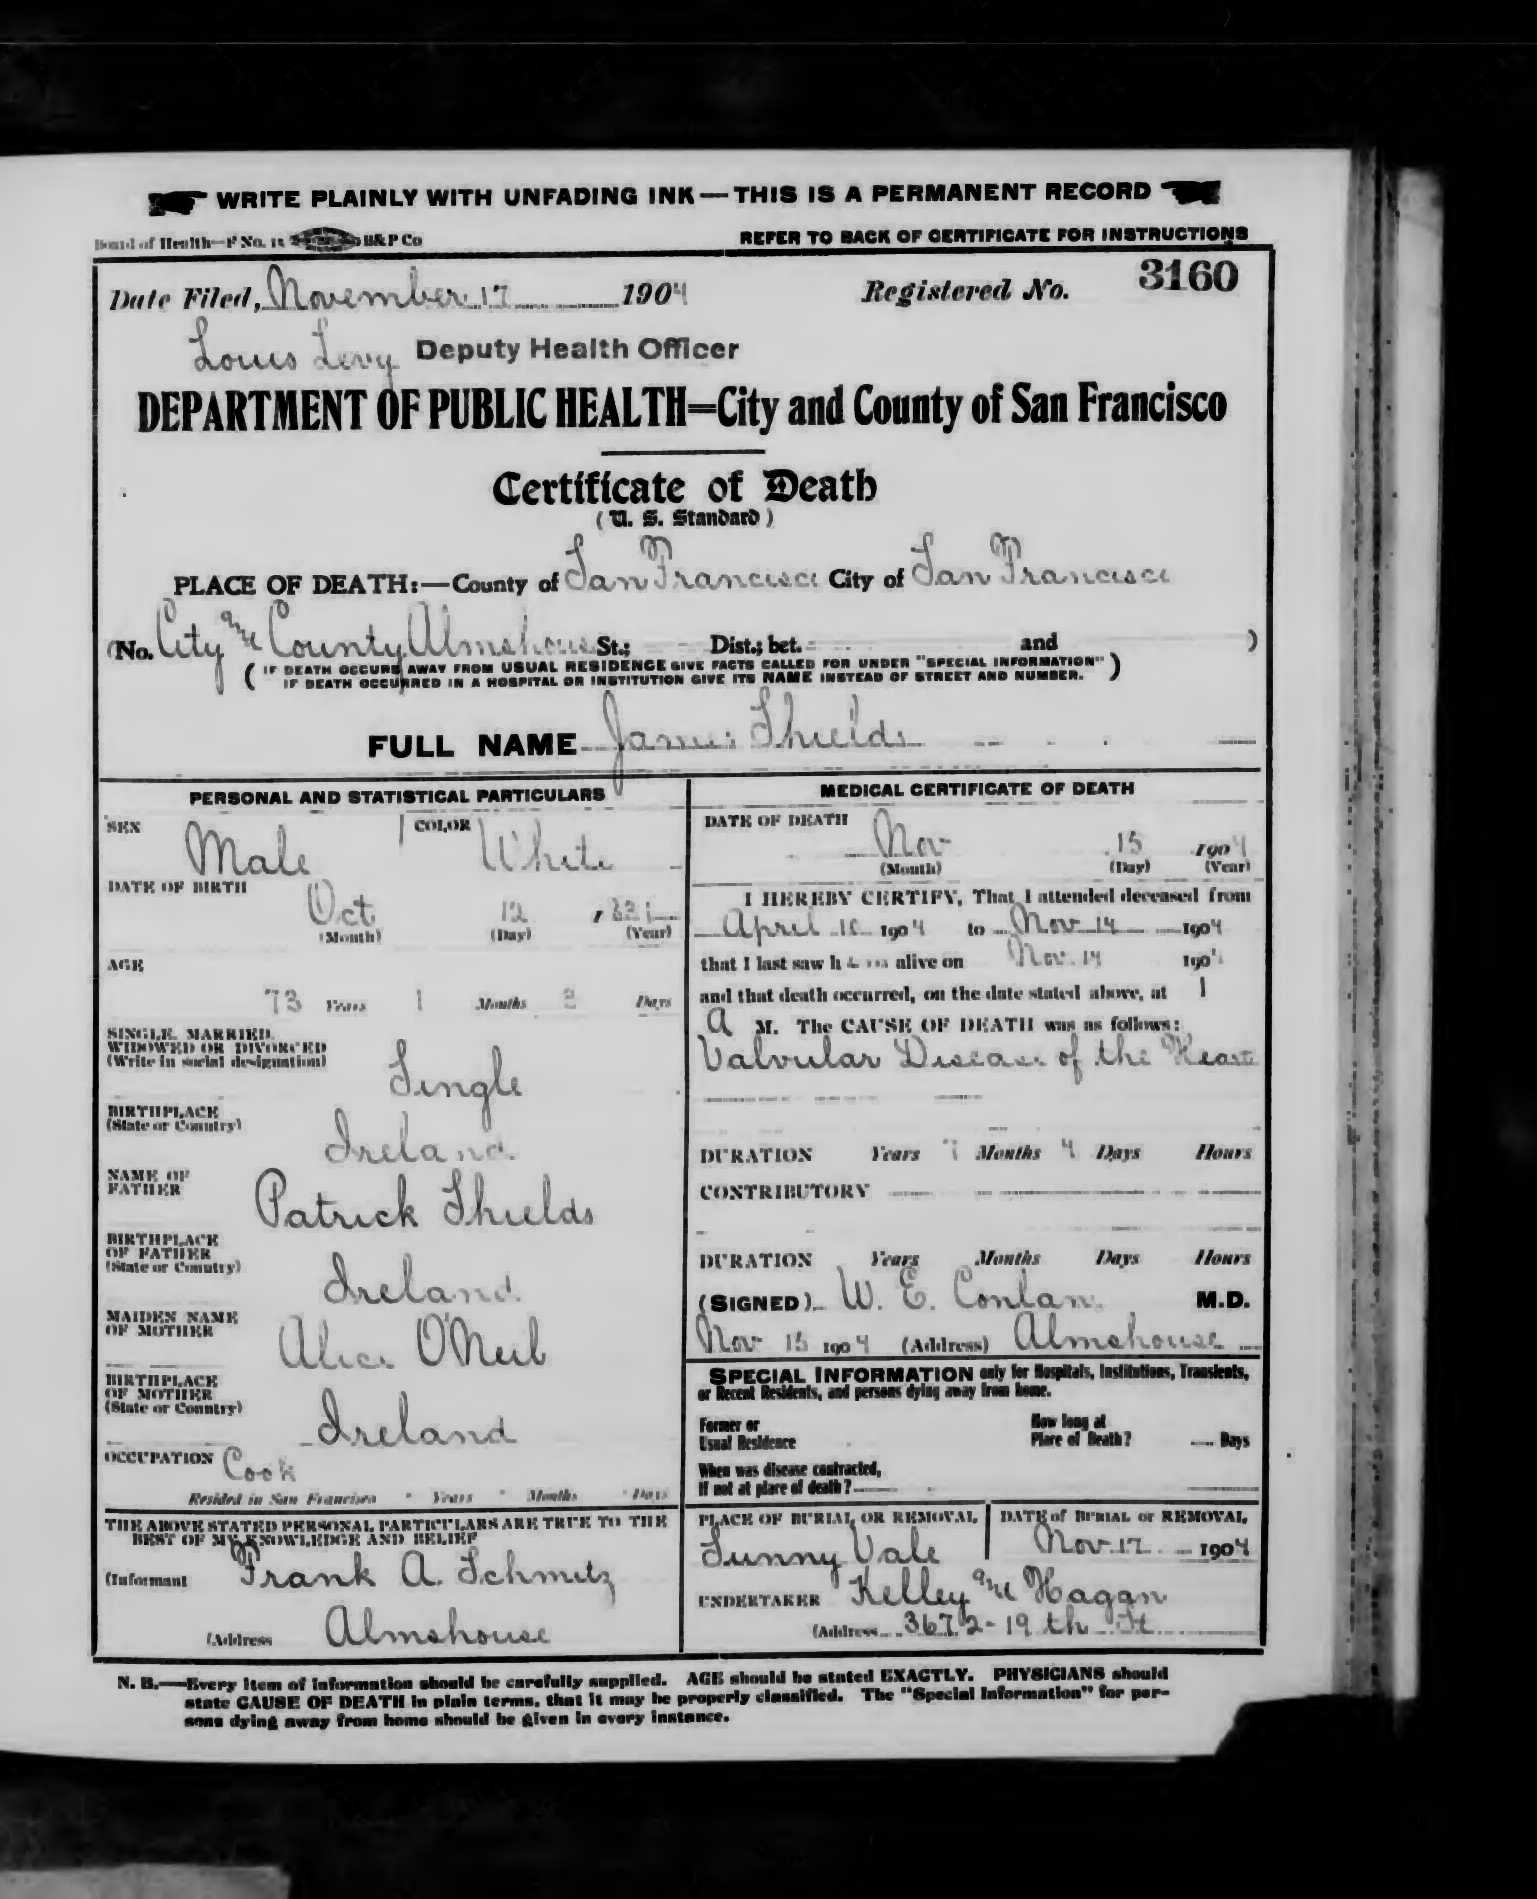 WRITE PLAINLY WITH UNFADING INK — THIS IS A PERMANENT RECORD
Board of Health—F No. 15 B&P Co
REFER TO BACK OF CERTIFICATE FOR INSTRUCTIONS
Date Filed, November 17 1904 Registered No. 3160
Louis Levy Deputy Health Officer
DEPARTMENT OF PUBLIC HEALTH=City and County of San Francisco
Certificate of Death
(U. S. Standard)
PLACE OF DEATH:—County of San Francisco City of San Francisco
(No. City and County Almshouse St.; Dist.; bet. and )
( IF DEATH OCCURS AWAY FROM USUAL RESIDENCE GIVE FACTS CALLED FOR UNDER "SPECIAL INFORMATION" )
IF DEATH OCCURRED IN A HOSPITAL OR INSTITUTION GIVE ITS NAME INSTEAD OF STREET AND NUMBER.
FULL NAME James Shields
PERSONAL AND STATISTICAL PARTICULARS
SEX Male COLOR White
DATE OF BIRTH Oct 12 , 831
(Month) (Day) (Year)
AGE
73 Years 1 Months 3 Days
SINGLE, MARRIED,
WIDOWED OR DIVORCED
(Write in social designation)
Single
BIRTHPLACE
(State or Country)
Ireland
NAME OF
FATHER
Patrick Shields
BIRTHPLACE
OF FATHER
(State or Country)
Ireland
MAIDEN NAME
OF MOTHER
Alice O'Neil
BIRTHPLACE
OF MOTHER
(State or Country)
Ireland
OCCUPATION Cook
Resided in San Francisco Years Months Days
THE ABOVE STATED PERSONAL PARTICULARS ARE TRUE TO THE
BEST OF MY KNOWLEDGE AND BELIEF
(Informant Frank A. Schmitz
(Address Almshouse
MEDICAL CERTIFICATE OF DEATH
DATE OF DEATH
Nov 15 1904
(Month) (Day) (Year)
I HEREBY CERTIFY, That I attended deceased from
April 10 1904 to Nov 14 1904
that I last saw him alive on Nov. 14 1904
and that death occurred, on the date stated above, at 1
A M. The CAUSE OF DEATH was as follows:
Valvular Disease of the Heart
DURATION Years 7 Months 4 Days Hours
CONTRIBUTORY
DURATION Years Months Days Hours
(SIGNED) W. E. Conlan M.D.
Nov 15 1904 (Address) Almshouse
SPECIAL INFORMATION only for Hospitals, Institutions, Transients,
or Recent Residents, and persons dying away from home.
Former or
Usual Residence
How long at
Place of Death? Days
When was disease contracted,
If not at place of death?
PLACE OF BURIAL OR REMOVAL
Sunny Vale
DATE of BURIAL or REMOVAL
Nov 17 1904
UNDERTAKER Kelley and Hagan
(Address 3672-19th St
N. B.—Every item of information should be carefully supplied. AGE should be stated EXACTLY. PHYSICIANS should
state CAUSE OF DEATH in plain terms, that it may be properly classified. The "Special Information" for per-
sons dying away from home should be given in every instance.